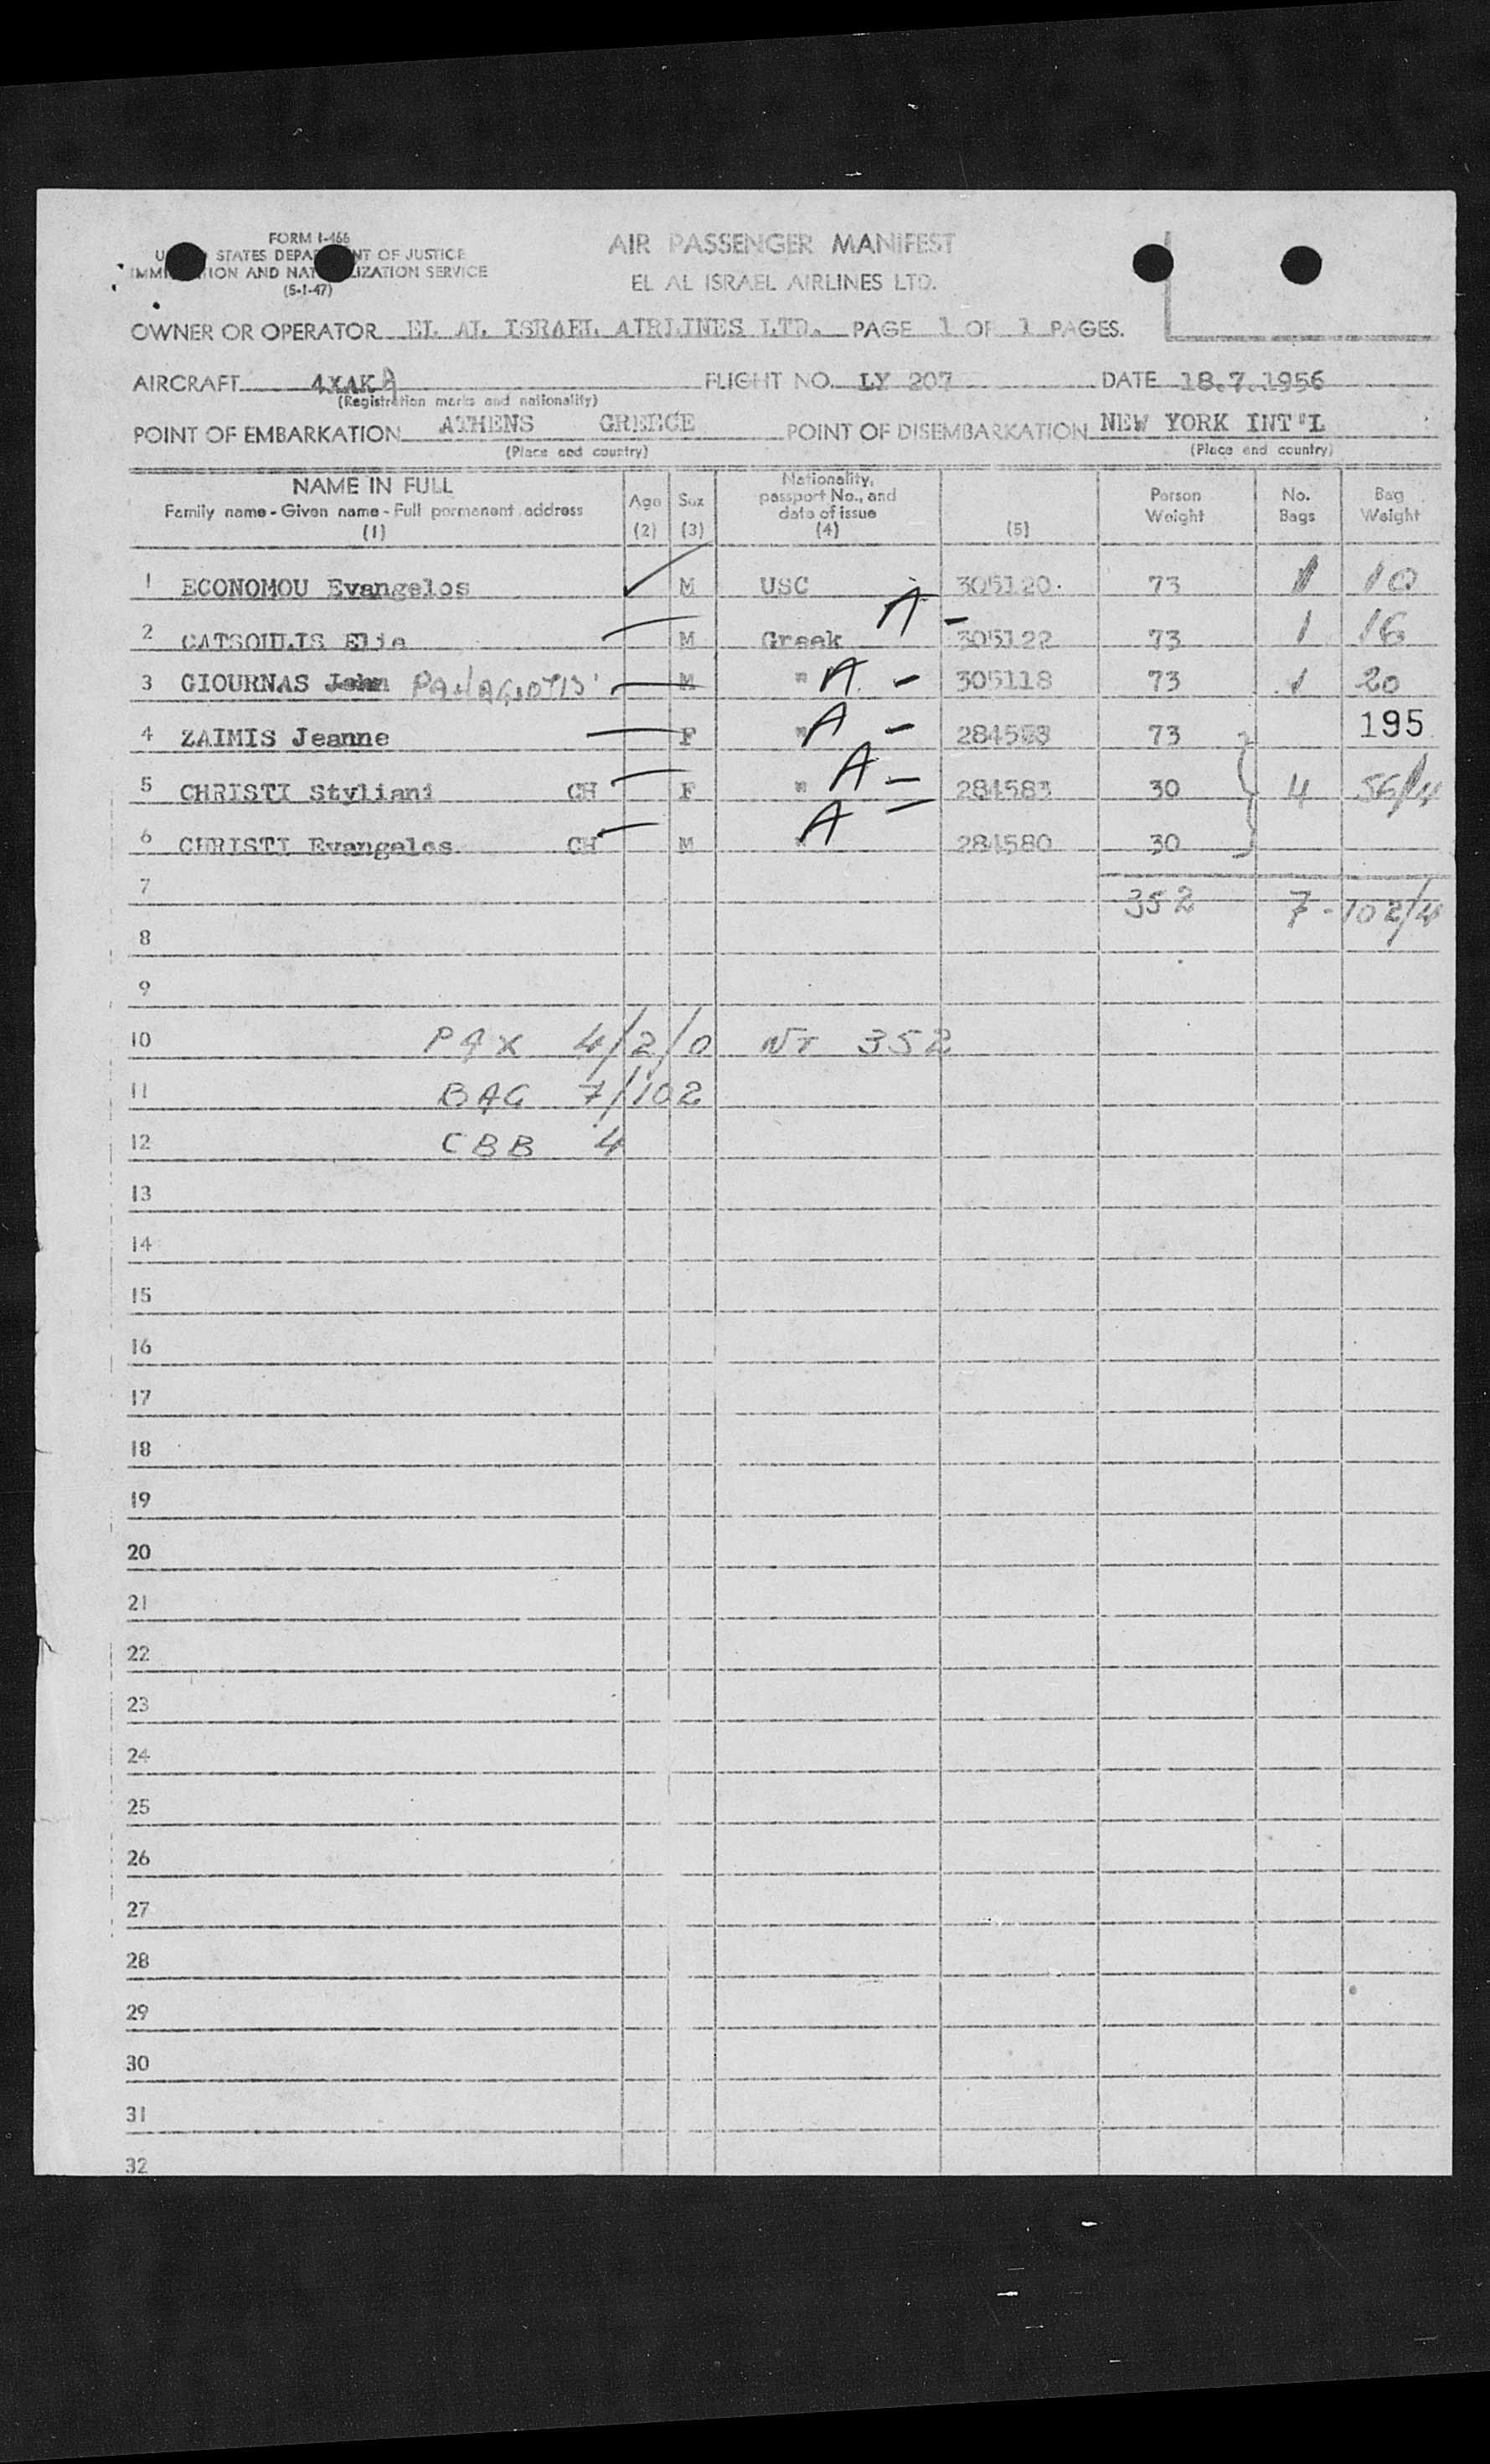 FORM I-466
STATES DEPA NT OF JUSTICE
IMMI TION AND NAT LIZATION SERVICE
(5-1-47)
AIR PASSENGER MANIFEST
EL AL ISRAEL AIRLINES LTD.
OWNER OR OPERATOR EL AL ISRAEL AIRLINES LTD. PAGE 1 OF 1 PAGES.
AIRCRAFT 4XAKA FLIGHT NO. LY 207 DATE 18.7.1956
(Registration marks and nationality)
POINT OF EMBARKATION ATHENS GREECE POINT OF DISEMBARKATION NEW YORK INT'L
(Place and country) (Place and country)
NAME IN FULL
Family name - Given name - Full permanent address
(1)
Age
(2)
Sex
(3)
Nationality,
passport No., and
date of issue
(4)
(5)
Person
Weight
No.
Bags
Bag
Weight
1 ECONOMOU Evangelos M USC 305120 73 1 10
2 CATSOULIS Elie M Greek A - 305122 73 1 16
3 GIOURNAS John PANAGIOTIS M " A - 305118 73 1 20
4 ZAIMIS Jeanne F " A - 73 195
5 CHRISTI Styliani CH F " A - 284583 30 4 56/4
6 CHRISTI Evangelos CH M " A - 284580 30
7 352 7-102/4
8
9
10 PAX 4/2/0 WT 352
11 BAG 7/102
12 CBB 4
13
14
15
16
17
18
19
20
21
22
23
24
25
26
27
28
29
30
31
32